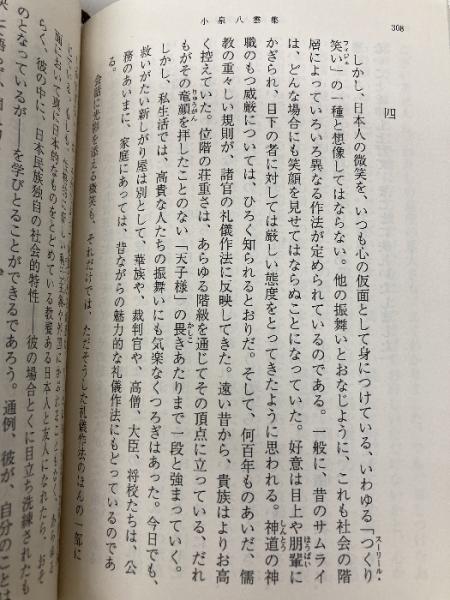 小泉八雲集
308
四
しかし、日本人の微笑を、いつも心の仮面として身につけている、いわゆる「つくり
笑い」の一種と想像してはならない。他の振舞いとおなじように、これも社会の階
層によっていろいろ異なる作法が定められているのである。一般に、昔のサムライ
は、どんな場合にも笑顔を見せてはならぬことになっていた。好意は目上や朋輩に
かぎられ、目下の者に対しては厳しい態度をとってきたように思われる。神道の神
職のもつ威厳については、ひろく知られるとおりだ。そして、何百年ものあいだ、儒
教の重々しい規則が、諸官の礼儀作法に反映してきた。遠い昔から、貴族はよりお高
く控えていた。位階の荘重さは、あらゆる階級を通じてその頂点に立っている、たれ
もがその竜顔を拝したことのない「天子様」の畏きあたりまで一段と強まっていく。
しかし、私生活では、高貴な人たちの振舞いにも気楽なくつろぎはあった。今日でも、
救いがたい新しがり屋は別として、華族や、裁判官や、高僧、大臣、将校たちは、公
務のあいまに、家庭にあっては、昔ながらの魅力的な礼儀作法にもどっているのであ
る。
会話に光彩を添える微笑も、それだけでは、ただそうした礼儀作法のほんの一部に
面において真に日本的なものをとどめている教養ある日本人と友人になれたら、おそ
らく、彼の中に、日本民族独自の社会的特性――彼の場合とくに目立ち洗練されたも
のとなっているが を学びとることができるであろう。通例、彼が、自分のことは